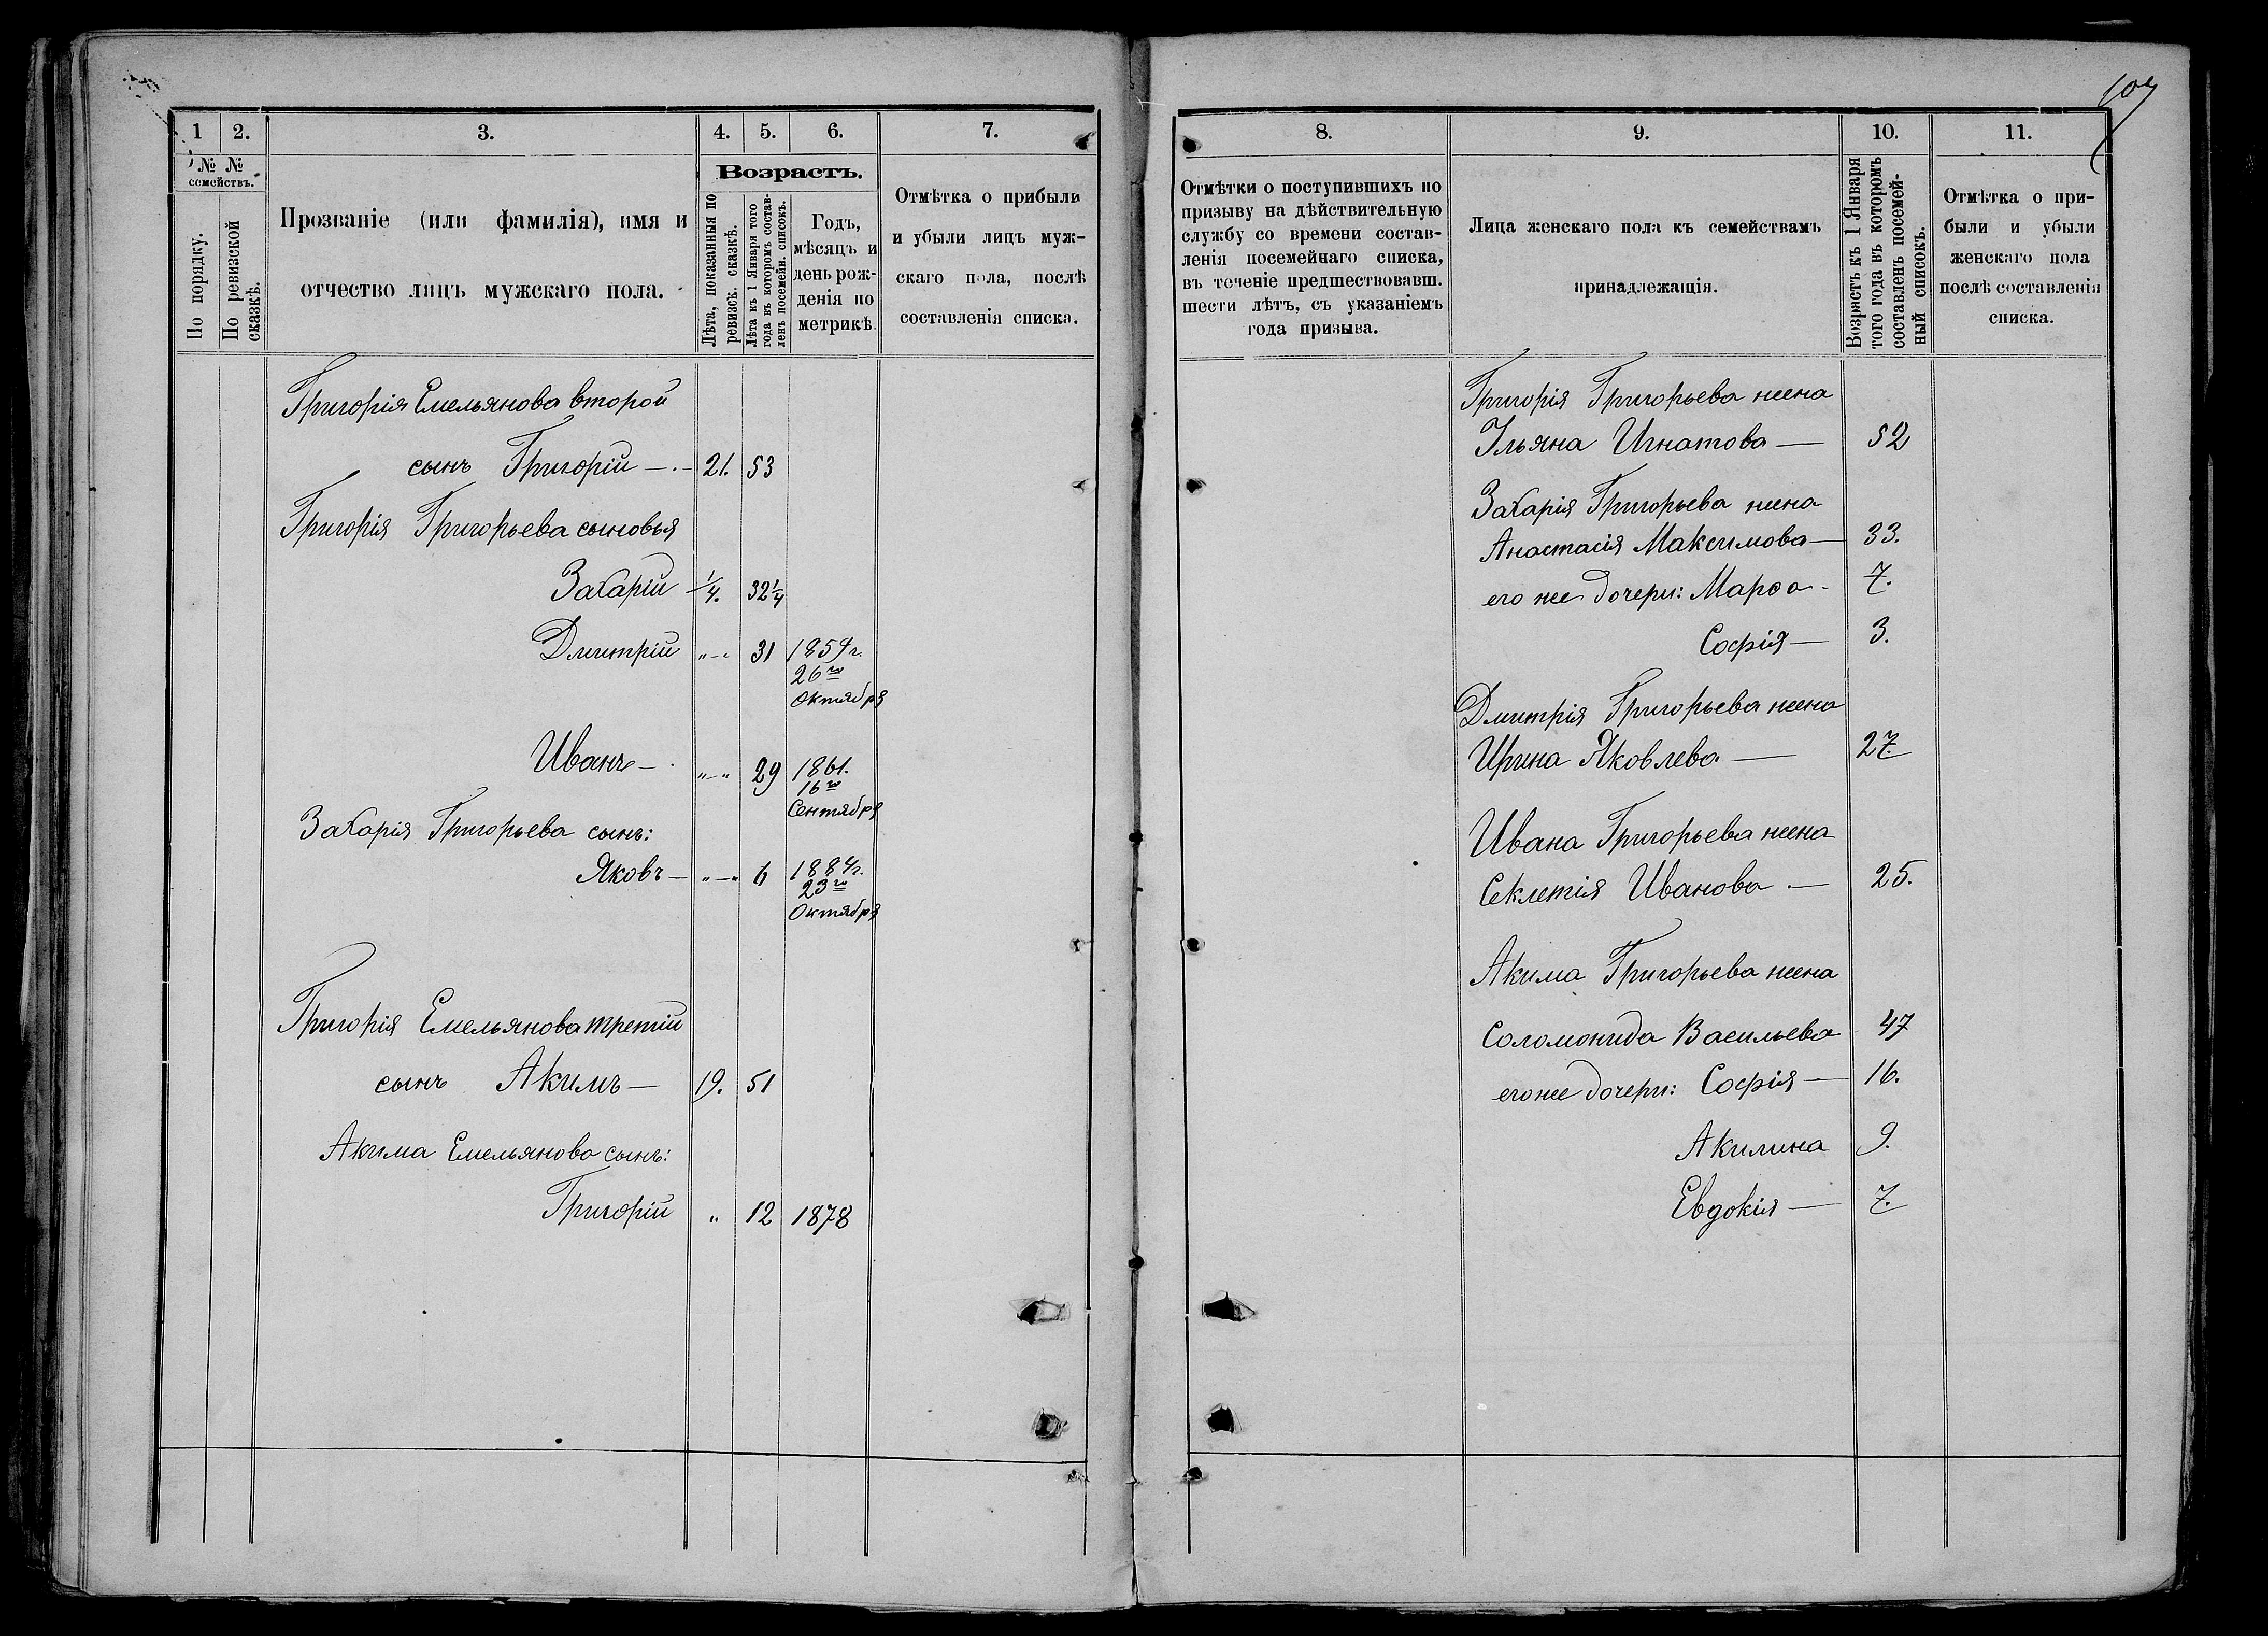 107
1 2. 3. 4. 5. 6. 7.
№ № семействъ.
По порядку.
По ревизской сказкѣ.
Прозваніе (или фамилія), имя и
отчество лицъ мужскаго пола.
Возрастъ.
Лѣта, показанныя по ревизск. сказкѣ.
Лѣта къ 1 Января того года въ которомъ составленъ посемейн. списокъ.
Годъ,
мѣсяцъ и
день рож-
денія по
метрикѣ.
Отмѣтка о прибыли
и убыли лицъ муж-
скаго пола, послѣ
составленія списка.
Григорія Емельянова второй
сынъ Григорій — 21. 53
Григорія Григорьева сыновья
Захарій 1/4. 32 1/4
Дмитрій „—„ 31 1859 г.
26го
Октября
Иванъ — „—„ 29 1861.
16го
Сентября
Захарія Григорьева сынъ:
Яковъ — „—„ 6 1884 г.
23го
Октября
Григорія Емельянова третій
сынъ Акимъ — 19. 51
Акима Емельянова сынъ:
Григорій „ 12 1878
8. 9. 10. 11.
Отмѣтки о поступившихъ по
призыву на дѣйствительную
службу со времени состав-
ленія посемейнаго списка,
въ теченіе предшествовавш.
шести лѣтъ, съ указаніемъ
года призыва.
Лица женскаго пола къ семействамъ
принадлежащія.
Возрастъ къ 1 Января
того года въ которомъ
составленъ посемей-
ный списокъ.
Отмѣтка о при-
были и убыли
женскаго пола
послѣ составленія
списка.
Григорія Григорьева жена
Ульяна Игнатова — 52
Захарія Григорьева жена
Анастасія Максимова — 33.
его же дочери: Марѳа - 7.
Софія — 3.
Дмитрія Григорьева жена
Ирина Яковлева — 27.
Ивана Григорьева жена
Секлетія Иванова — 25.
Акима Григорьева жена
Соломонида Васильева 47
его же дочери: Софія — 16.
Акилина 9.
Евдокія — 7.